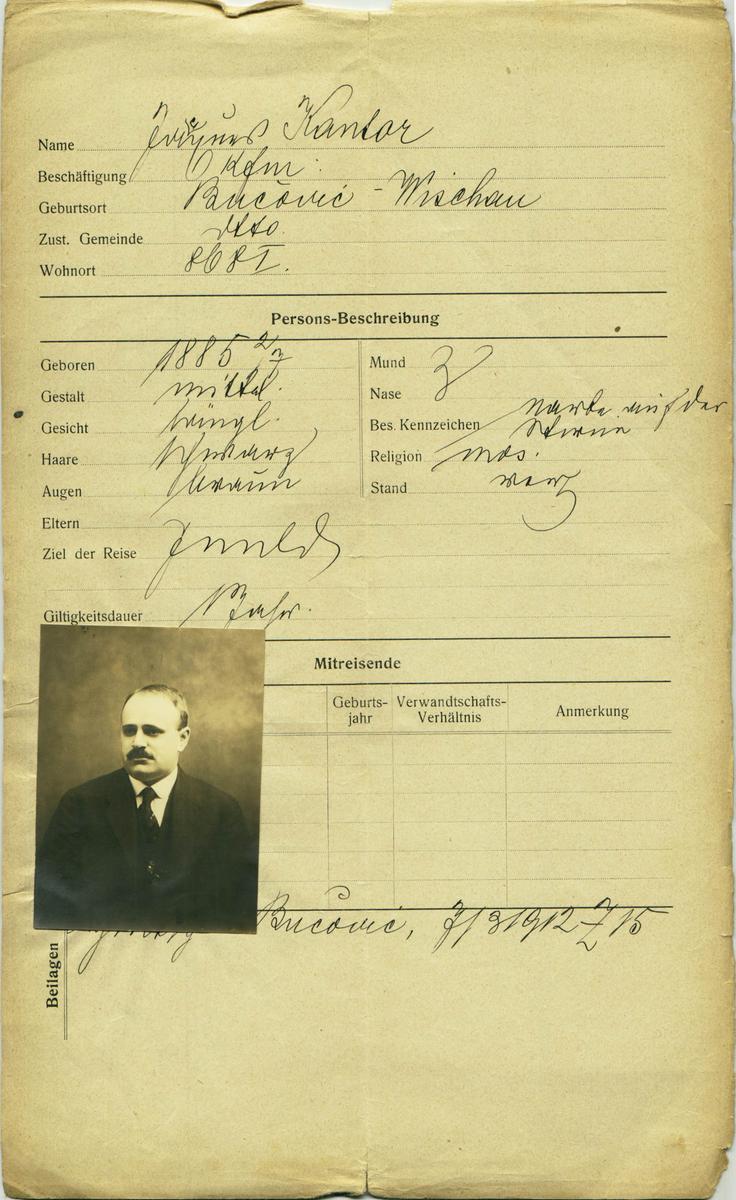 Name Jacques Kantor
Beschäftigung Kfm.
Geburtsort Bučovic - Wischau
Zust. Gemeinde dtto.
Wohnort 868 I.
Persons-Beschreibung
Geboren 1885 2/7
Gestalt mittel.
Gesicht längl.
Haare schwarz
Augen braun
Eltern
Ziel der Reise
Giltigkeitsdauer 1 Jahr.
Mund
Nase
Bes. Kennzeichen Narbe auf der
Stirne
Religion mos.
Stand
Mitreisende
Geburts-
jahr
Verwandtschafts-
Verhältnis
Anmerkung
Beilagen
Bučovic, 7/3 1912 Z 15